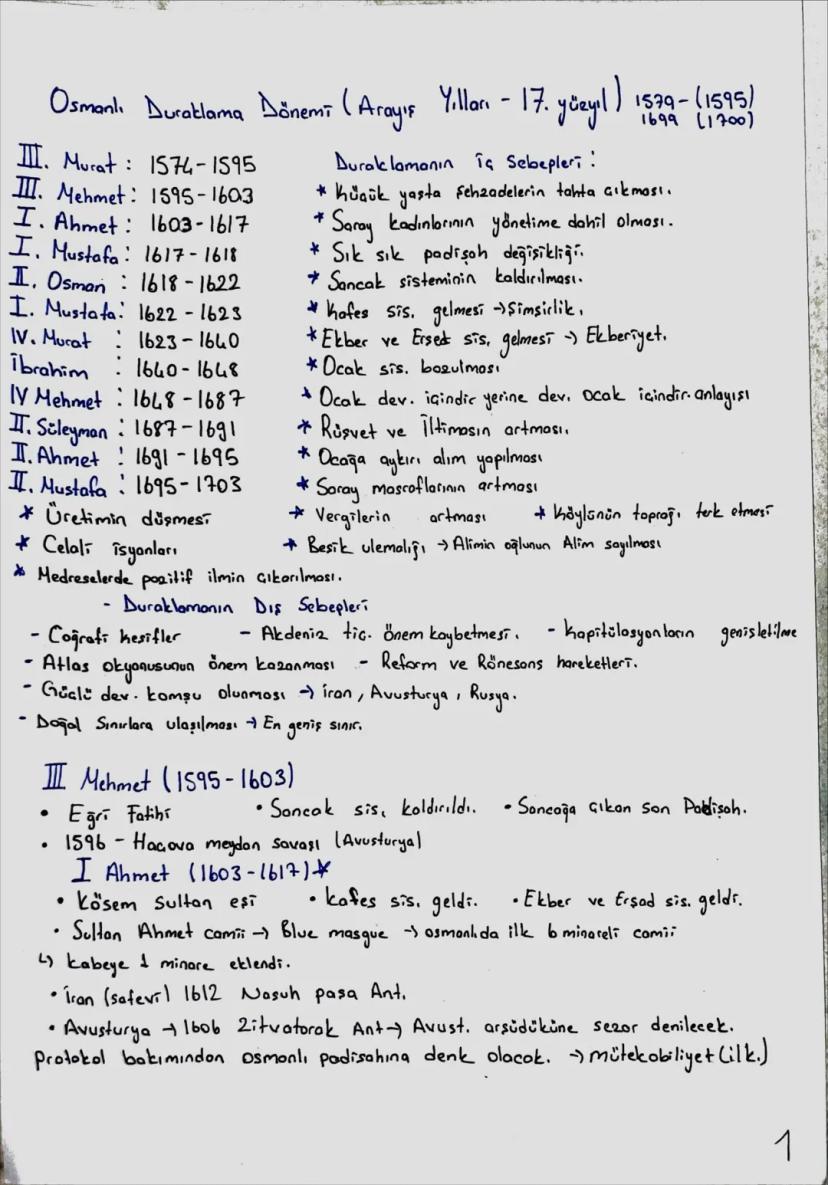 Osmanlı Duraklama Dönemi (Arayış Yılları - 17. yüzyıl) 1579-(1595)
1699 (1700)
III. Murat : 1574-1595
Duraklamanın iç Sebepleri :
III. Mehmet : 1595-1603
* Küçük yaşta şehzadelerin tahta çıkması.
I. Ahmet : 1603-1617
* Saray kadınlarının yönetime dahil olması.
I. Mustafa : 1617-1618
* Sık sık padişah değişikliği.
II. Osman : 1618-1622
* Sancak sisteminin kaldırılması.
I. Mustafa : 1622-1623
* Kafes sis. gelmesi → Şimşirlik.
IV. Murat : 1623-1640
* Ekber ve Erşed sis. gelmesi → Ekberiyet.
İbrahim : 1640-1648
* Ocak sis. bozulması
IV Mehmet : 1648-1687
* Ocak dev. içindir yerine dev. ocak içindir. anlayışı
II. Süleyman : 1687-1691
* Rüşvet ve İltimasın artması.
II. Ahmet : 1691-1695
* Ocağa aykırı alım yapılması
II. Mustafa : 1695-1703
* Saray masraflarının artması
* Üretimin düşmesi * Vergilerin artması * Köylünün toprağı terk etmesi
* Celali isyanları * Beşik ulemalığı → Alimin oğlunun Alim sayılması
* Medreselerde pozitif ilmin çıkarılması.
- Duraklamanın Dış Sebepleri
- Coğrafi keşifler - Akdeniz tic. önem kaybetmesi. - Kapitülasyonların genişletilme
- Atlas okyanusunun önem kazanması - Reform ve Rönesans hareketleri.
- Güçlü dev. komşu olunması → iran, Avusturya, Rusya.
- Doğal Sınırlara ulaşılması → En geniş sınır.
III Mehmet (1595-1603)
• Eğri Fatihi • Sancak sis. kaldırıldı. • Sancağa çıkan son Padişah.
• 1596 - Haçova meydan savaşı (Avusturya)
I Ahmet (1603-1617)*
• Kösem Sultan eşi • Kafes sis. geldi. • Ekber ve Erşad sis. geldi.
• Sultan Ahmet camii → Blue masque → osmanlıda ilk 6 minareli camii
↳ Kabeye 1 minare eklendi.
• İran (safevi) 1612 Nasuh paşa Ant.
• Avusturya → 1606 Zitvatorak Ant → Avust. arşüdüküne sezar denilecek.
Protokol bakımından osmanlı padişahına denk olacak. → mütekabiliyet (ilk.)
1